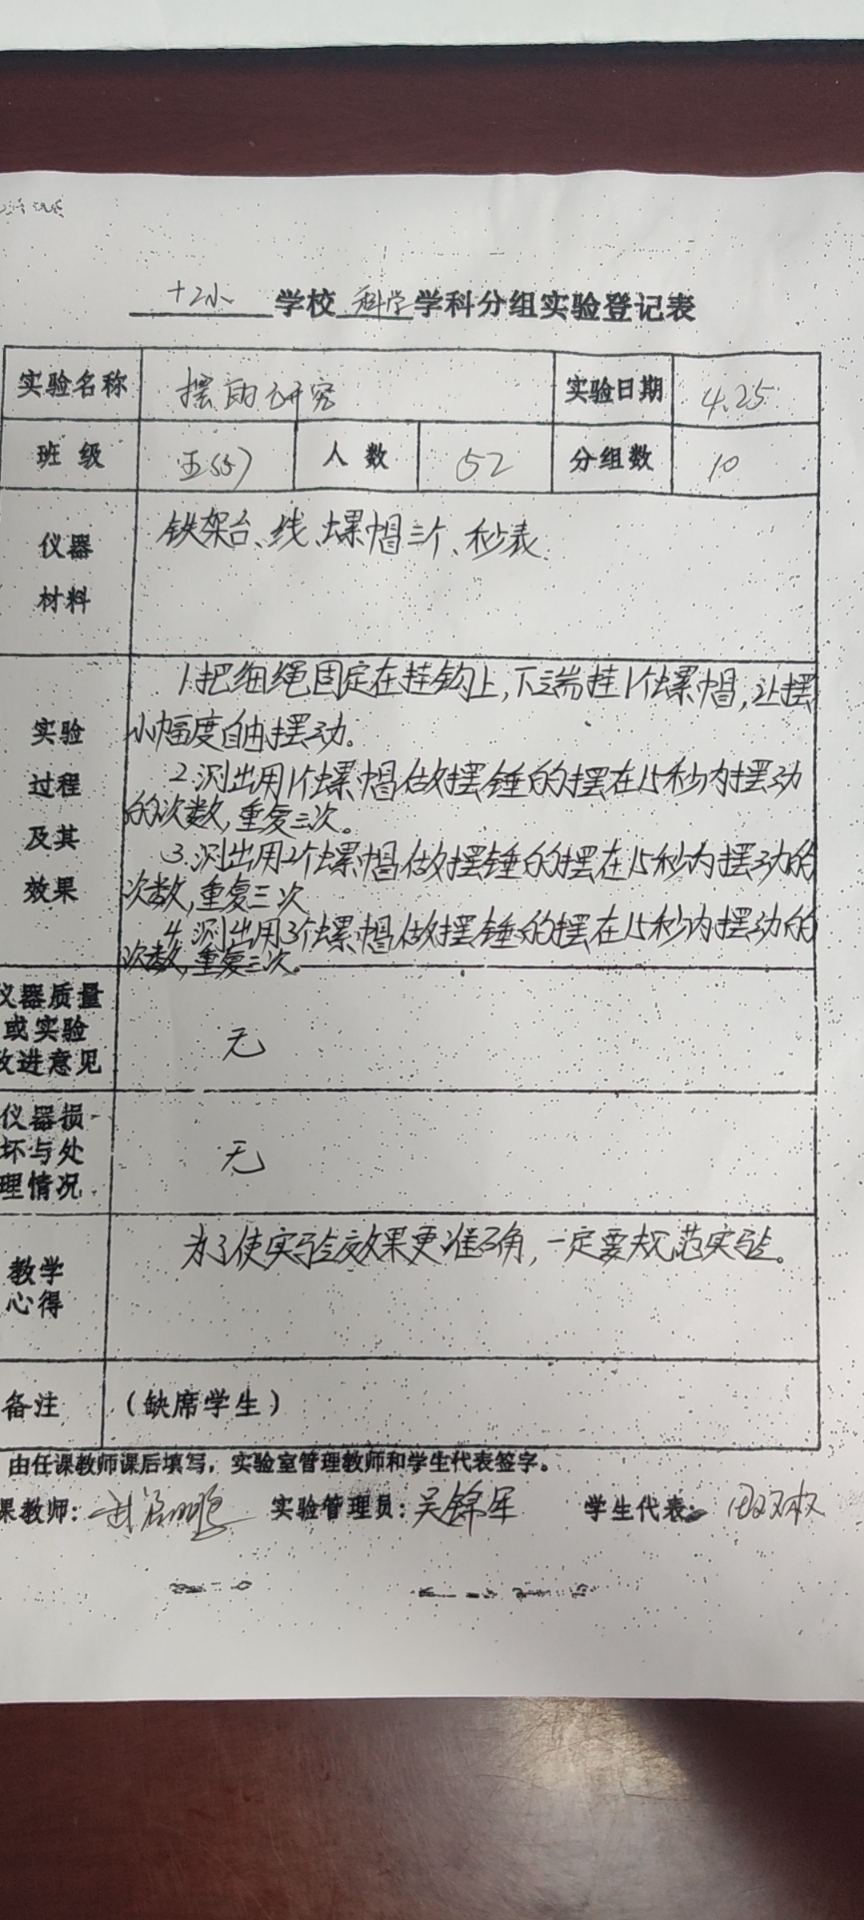 十二小学校科学学科分组实验登记表
实验名称 摆的研究 实验日期 4.25
班级 五(5) 人数 52 分组数 10
仪器
材料
铁架台、线、螺帽三个、秒表
实验
过程
及其
效果
1.把细绳固定在挂钩上,下端挂1个螺帽,让摆
小幅度自由摆动。
2.测出用1个螺帽做摆锤的摆在15秒内摆动
的次数,重复三次。
3.测出用2个螺帽做摆锤的摆在15秒内摆动的
次数,重复三次
4.测出用3个螺帽做摆锤的摆在15秒内摆动的
次数,重复三次。
仪器质量
或实验
改进意见
无
仪器损
坏与处
理情况
无
教学
心得
为了使实验效果更准确,一定要规范实验。
备注 (缺席学生)
由任课教师课后填写,实验室管理教师和学生代表签字。
课教师: 实验管理员:吴锦军 学生代表: